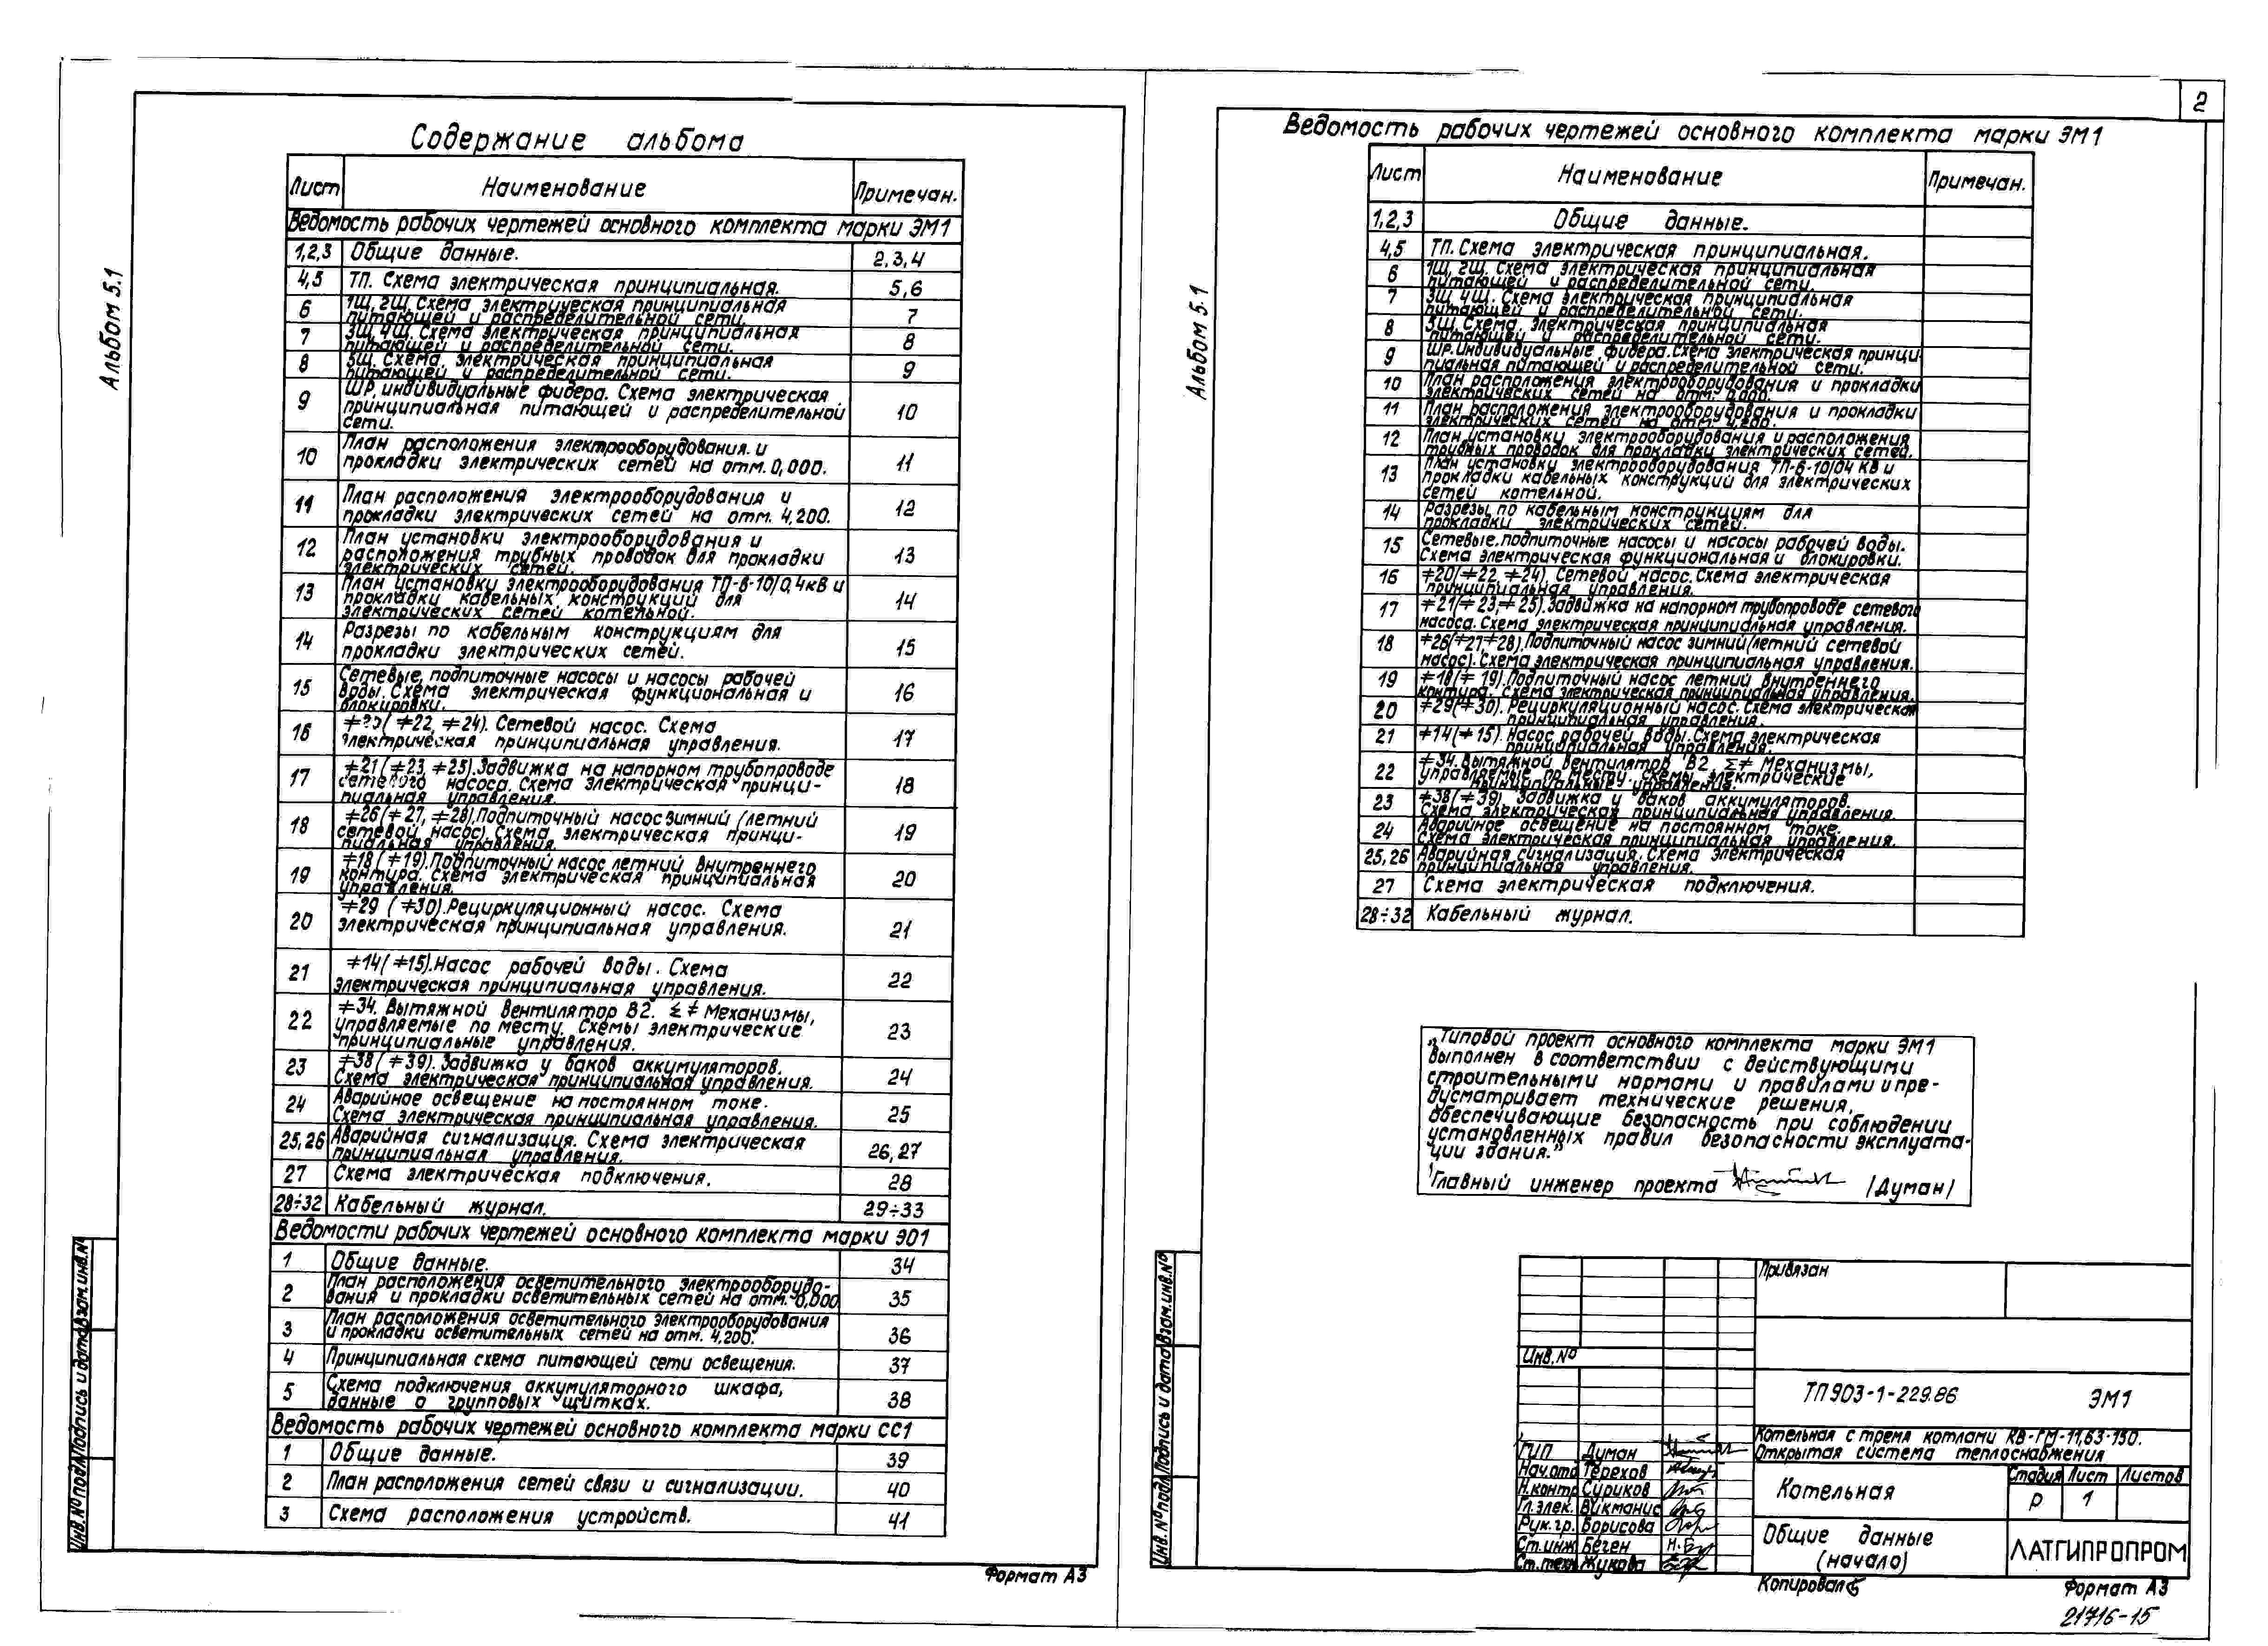 Альбом 5.1
Содержание альбома
Лист Наименование Примечан.
Ведомость рабочих чертежей основного комплекта марки ЭМ1
1,2,3 Общие данные. 2,3,4
4,5 ТП. Схема электрическая принципиальная. 5,6
6 1Щ, 2Щ. Схема электрическая принципиальная
питающей и распределительной сети. 7
7 3Щ, 4Щ. Схема электрическая принципиальная
питающей и распределительной сети. 8
8 5Щ. Схема электрическая принципиальная
питающей и распределительной сети. 9
9 ШР, индивидуальные фидера. Схема электрическая
принципиальная питающей и распределительной
сети. 10
10 План расположения электрооборудования и
прокладки электрических сетей на отм. 0,000. 11
11 План расположения электрооборудования и
прокладки электрических сетей на отм. 4,200. 12
12 План установки электрооборудования и
расположения трубных проводок для прокладки
электрических сетей. 13
13 План установки электрооборудования ТП-6-10/0,4кВ и
прокладки кабельных конструкций для
электрических сетей котельной. 14
14 Разрезы по кабельным конструкциям для
прокладки электрических сетей. 15
15 Сетевые, подпиточные насосы и насосы рабочей
воды. Схема электрическая функциональная и
блокировки. 16
16 ≠20(≠22, ≠24). Сетевой насос. Схема
электрическая принципиальная управления. 17
17 ≠21(≠23, ≠25). Задвижка на напорном трубопроводе
сетевого насоса. Схема электрическая принци-
пиальная управления. 18
18 ≠26(≠27, ≠28). Подпиточный насос зимний (летний
сетевой насос). Схема электрическая принци-
пиальная управления. 19
19 ≠18(≠19). Подпиточный насос летний внутреннего
контура. Схема электрическая принципиальная
управления. 20
20 ≠29 (≠30). Рециркуляционный насос. Схема
электрическая принципиальная управления. 21
21 ≠14(≠15). Насос рабочей воды. Схема
электрическая принципиальная управления. 22
22 ≠34. Вытяжной вентилятор В2. Σ≠ Механизмы,
управляемые по месту. Схемы электрические
принципиальные управления. 23
23 ≠38(≠39). Задвижка у баков аккумуляторов.
Схема электрическая принципиальная управления. 24
24 Аварийное освещение на постоянном токе.
Схема электрическая принципиальная управления. 25
25,26 Аварийная сигнализация. Схема электрическая
принципиальная управления. 26,27
27 Схема электрическая подключения. 28
28÷32 Кабельный журнал. 29÷33
Ведомости рабочих чертежей основного комплекта марки ЭО1
1 Общие данные. 34
2 План расположения осветительного электрооборудо-
вания и прокладки осветительных сетей на отм. 0,000 35
3 План расположения осветительного электрооборудования
и прокладки осветительных сетей на отм. 4,200. 36
4 Принципиальная схема питающей сети освещения. 37
5 Схема подключения аккумуляторного шкафа,
данные о групповых щитках. 38
Ведомость рабочих чертежей основного комплекта марки СС1
1 Общие данные. 39
2 План расположения сетей связи и сигнализации. 40
3 Схема расположения устройств. 41
Инв.№ подл. Подпись и дата Взам.инв.№
Формат А3
2
Альбом 5.1
Ведомость рабочих чертежей основного комплекта марки ЭМ1
Лист Наименование Примечан.
1,2,3 Общие данные.
4,5 ТП. Схема электрическая принципиальная.
6 1Щ, 2Щ. Схема электрическая принципиальная
питающей и распределительной сети.
7 3Щ, 4Щ. Схема электрическая принципиальная
питающей и распределительной сети.
8 5Щ. Схема электрическая принципиальная
питающей и распределительной сети.
9 ШР. Индивидуальные фидера. Схема электрическая принци-
пиальная питающей и распределительной сети.
10 План расположения электрооборудования и прокладки
электрических сетей на отм. 0,000.
11 План расположения электрооборудования и прокладки
электрических сетей на отм. 4,200.
12 План установки электрооборудования и расположения
трубных проводок для прокладки электрических сетей.
13 План установки электрооборудования ТП-6-10/04 кВ и
прокладки кабельных конструкций для электрических
сетей котельной.
14 Разрезы по кабельным конструкциям для
прокладки электрических сетей.
15 Сетевые, подпиточные насосы и насосы рабочей воды.
Схема электрическая функциональная и блокировки.
16 ≠20(≠22, ≠24). Сетевой насос. Схема электрическая
принципиальная управления.
17 ≠21(≠23, ≠25). Задвижка на напорном трубопроводе сетевого
насоса. Схема электрическая принципиальная управления.
18 ≠26(≠27, ≠28). Подпиточный насос зимний (летний сетевой
насос). Схема электрическая принципиальная управления.
19 ≠18(≠19). Подпиточный насос летний внутреннего
контура. Схема электрическая принципиальная управления.
20 ≠29(≠30). Рециркуляционный насос. Схема электрическая
принципиальная управления.
21 ≠14(≠15). Насос рабочей воды. Схема электрическая
принципиальная управления.
22 ≠34. Вытяжной вентилятор В2, Σ≠ Механизмы,
управляемые по месту. Схемы электрические
принципиальные управления.
23 ≠38(≠39). Задвижка у баков аккумуляторов.
Схема электрическая принципиальная управления.
24 Аварийное освещение на постоянном токе.
Схема электрическая принципиальная управления.
25,26 Аварийная сигнализация. Схема электрическая
принципиальная управления.
27 Схема электрическая подключения.
28÷32 Кабельный журнал.
„Типовой проект основного комплекта марки ЭМ1
выполнен в соответствии с действующими
строительными нормами и правилами и пре-
дусматривает технические решения,
обеспечивающие безопасность при соблюдении
установленных правил безопасности эксплуата-
ции здания."
Главный инженер проекта /Думан/
Привязан
Инв.№
ТП 903-1-229.86 ЭМ1
Котельная с тремя котлами КВ-ГМ-11,63-150.
Открытая система теплоснабжения
ГИП Думан
Нач.отд Терехов
Н.контр Суриков
Гл.элек. Вукманис
Рук.гр. Борисова
Ст.инж Беген
Ст.техн Жукова
Котельная
Стадия Лист Листов
Р 1
Общие данные
(начало)
ЛАТГИПРОПРОМ
Инв.№ подл. Подпись и дата Взам.инв.№
Копировал
Формат А3
21716-15